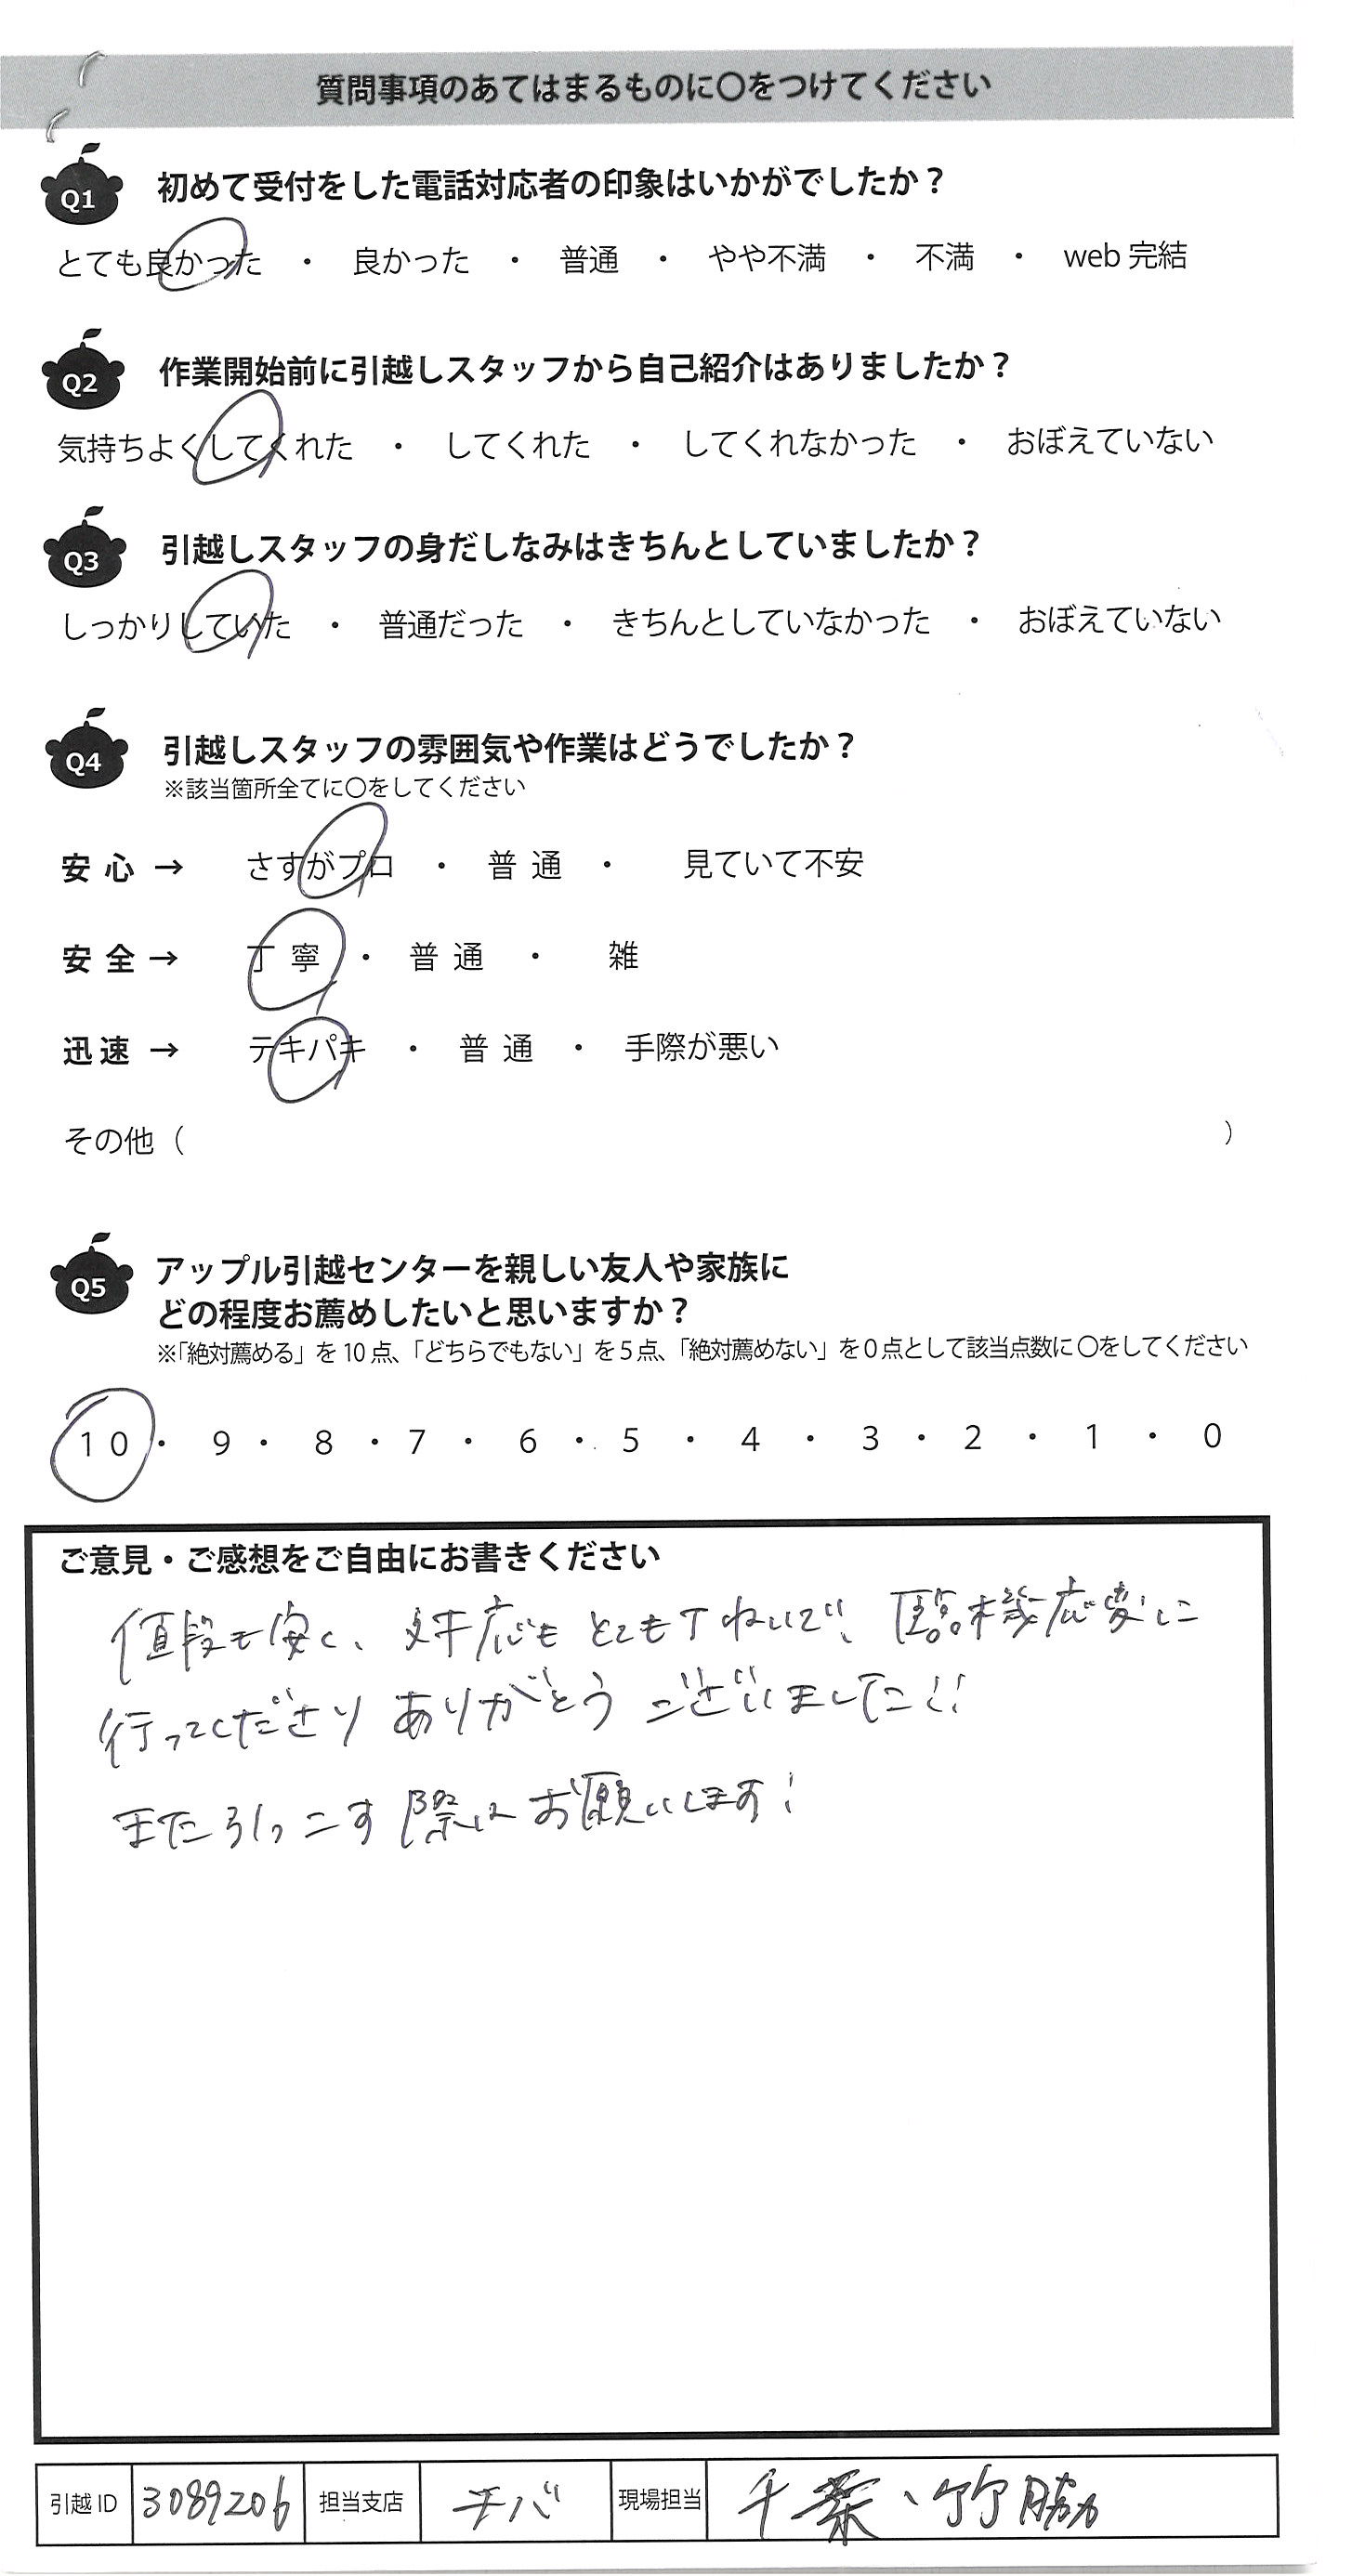 質問事項のあてはまるものに〇をつけてください
Q1 初めて受付をした電話対応者の印象はいかがでしたか？
とても良かった ・ 良かった ・ 普通 ・ やや不満 ・ 不満 ・ web 完結
Q2 作業開始前に引越しスタッフから自己紹介はありましたか？
気持ちよくしてくれた ・ してくれた ・ してくれなかった ・ おぼえていない
Q3 引越しスタッフの身だしなみはきちんとしていましたか？
しっかりしていた ・ 普通だった ・ きちんとしていなかった ・ おぼえていない
Q4 引越しスタッフの雰囲気や作業はどうでしたか？
※該当箇所全てに〇をしてください
安心 → さすがプロ ・ 普通 ・ 見ていて不安
安全 → 丁寧 ・ 普通 ・ 雑
迅速 → テキパキ ・ 普通 ・ 手際が悪い
その他（ ）
Q5 アップル引越センターを親しい友人や家族に
どの程度お薦めしたいと思いますか？
※「絶対薦める」を 10 点、「どちらでもない」を 5 点、「絶対薦めない」を 0 点として該当点数に 〇をしてください
10 ・ 9 ・ 8 ・ 7 ・ 6 ・ 5 ・ 4 ・ 3 ・ 2 ・ 1 ・ 0
ご意見・ご感想をご自由にお書きください
値段も安く、対応もとても丁ねいで、臨機応変に
行ってくださりありがとうございました!!
また引っこす際はお願いします!
引越 ID 3089206 担当支店 チバ 現場担当 千葉、竹勝